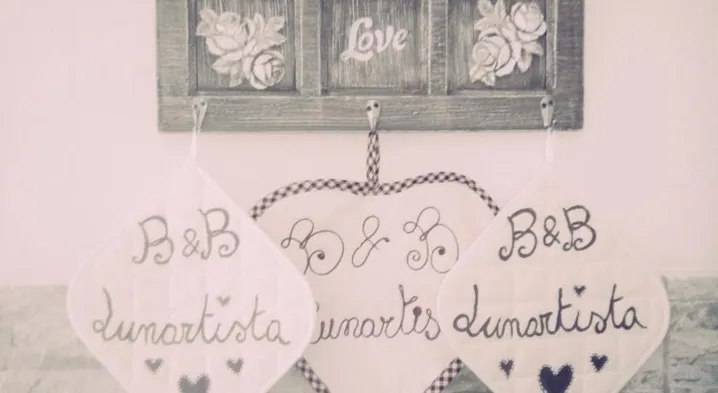 Love
B & B
Lunartista
B & B
unartis
B & B
Lunartista